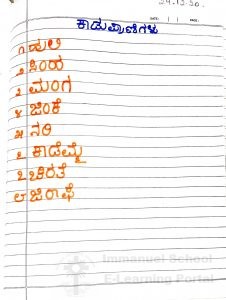 24-12-20.
ಕಾಡುಪ್ರಾಣಿಗಳು
DATE: | |
೧ ಹುಲಿ
೨ ಸಿಂಹ
೩ ಮಂಗ
೪ ಜಿಂಕೆ
೫ ನರಿ
೬ ಕಾಡೆಮ್ಮೆ
೭ ಚಿರತೆ
೮ ಜಿರಾಫೆ
Immanuel School
E-Learning Portal